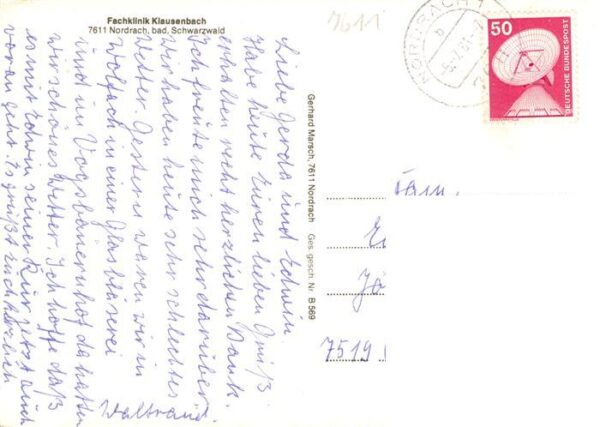 Fachklinik Klausenbach
7611 Nordrach, bad. Schwarzwald
7611
NORDRACH 1
b
50
DEUTSCHE BUNDESPOST
Liebe Gerda und Erwin.
Habe heute Euren lieben Gruß
erhalten recht herzlichen Dank.
Ich freute mich sehr darüber
wir haben heute sehr schlechtes
Wetter. Gestern waren wir in
Wolfach in einer Glasbläserei
und im Vogtsbauernhof da hatten
wir schönes Wetter. Ich hoffe daß
es mit Erwin seiner Kur jetzt auch
voran geht. Es grüßt Euch herzlich
Waltraud.
Gerhard Marsch, 7611 Nordrach Ges. gesch. Nr. B 569
Fam.
7519